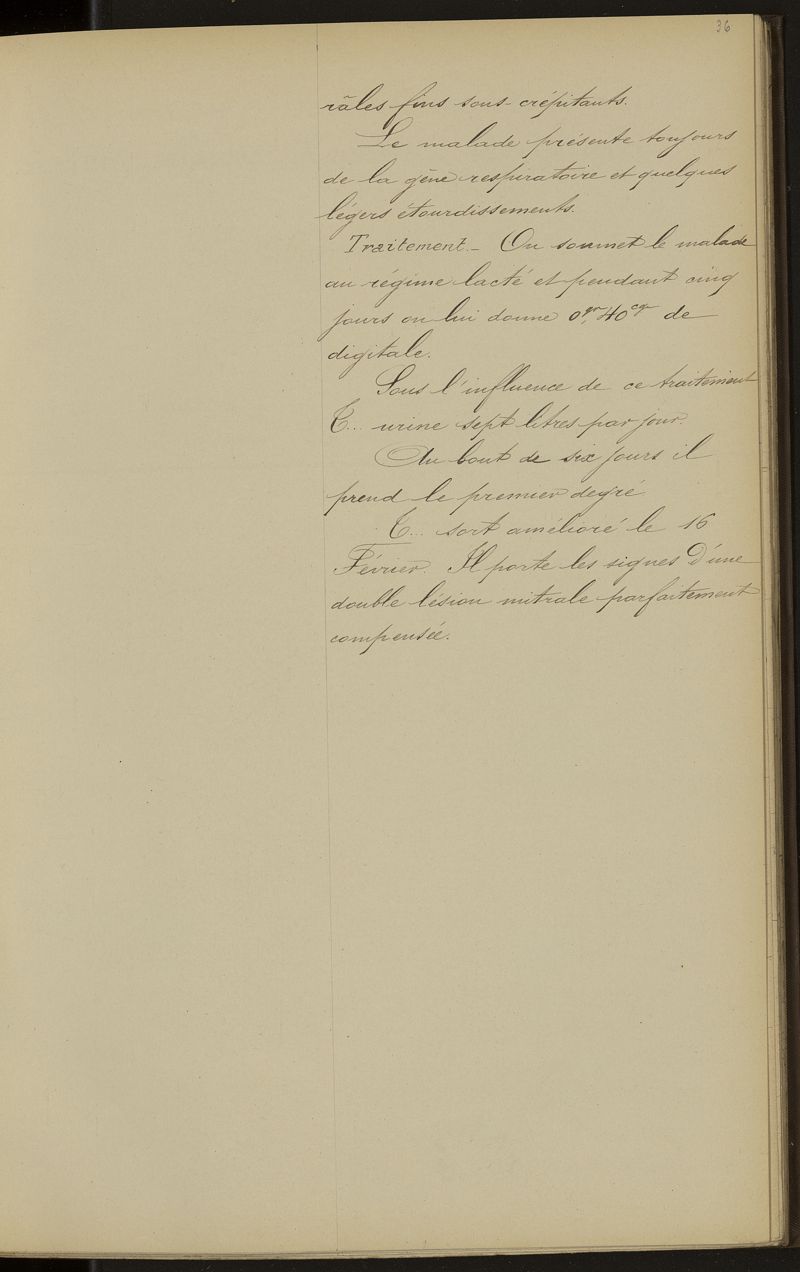 36
râles fins sous-crépitants.
Le malade présente toujours
de la gêne respiratoire et quelques
légers étourdissements.
Traitement._ On soumet le malade
au régime lacté et pendant cinq
jours on lui donne 0gr,40cg de
digitale.
Sous l'influence de ce traitement
T... urine sept litres par jour.
Au bout de six jours il
prend le premier degré
T... sort amélioré le 16
Février. Il porte les signes d'une
double lésion mitrale parfaitement
compensée.